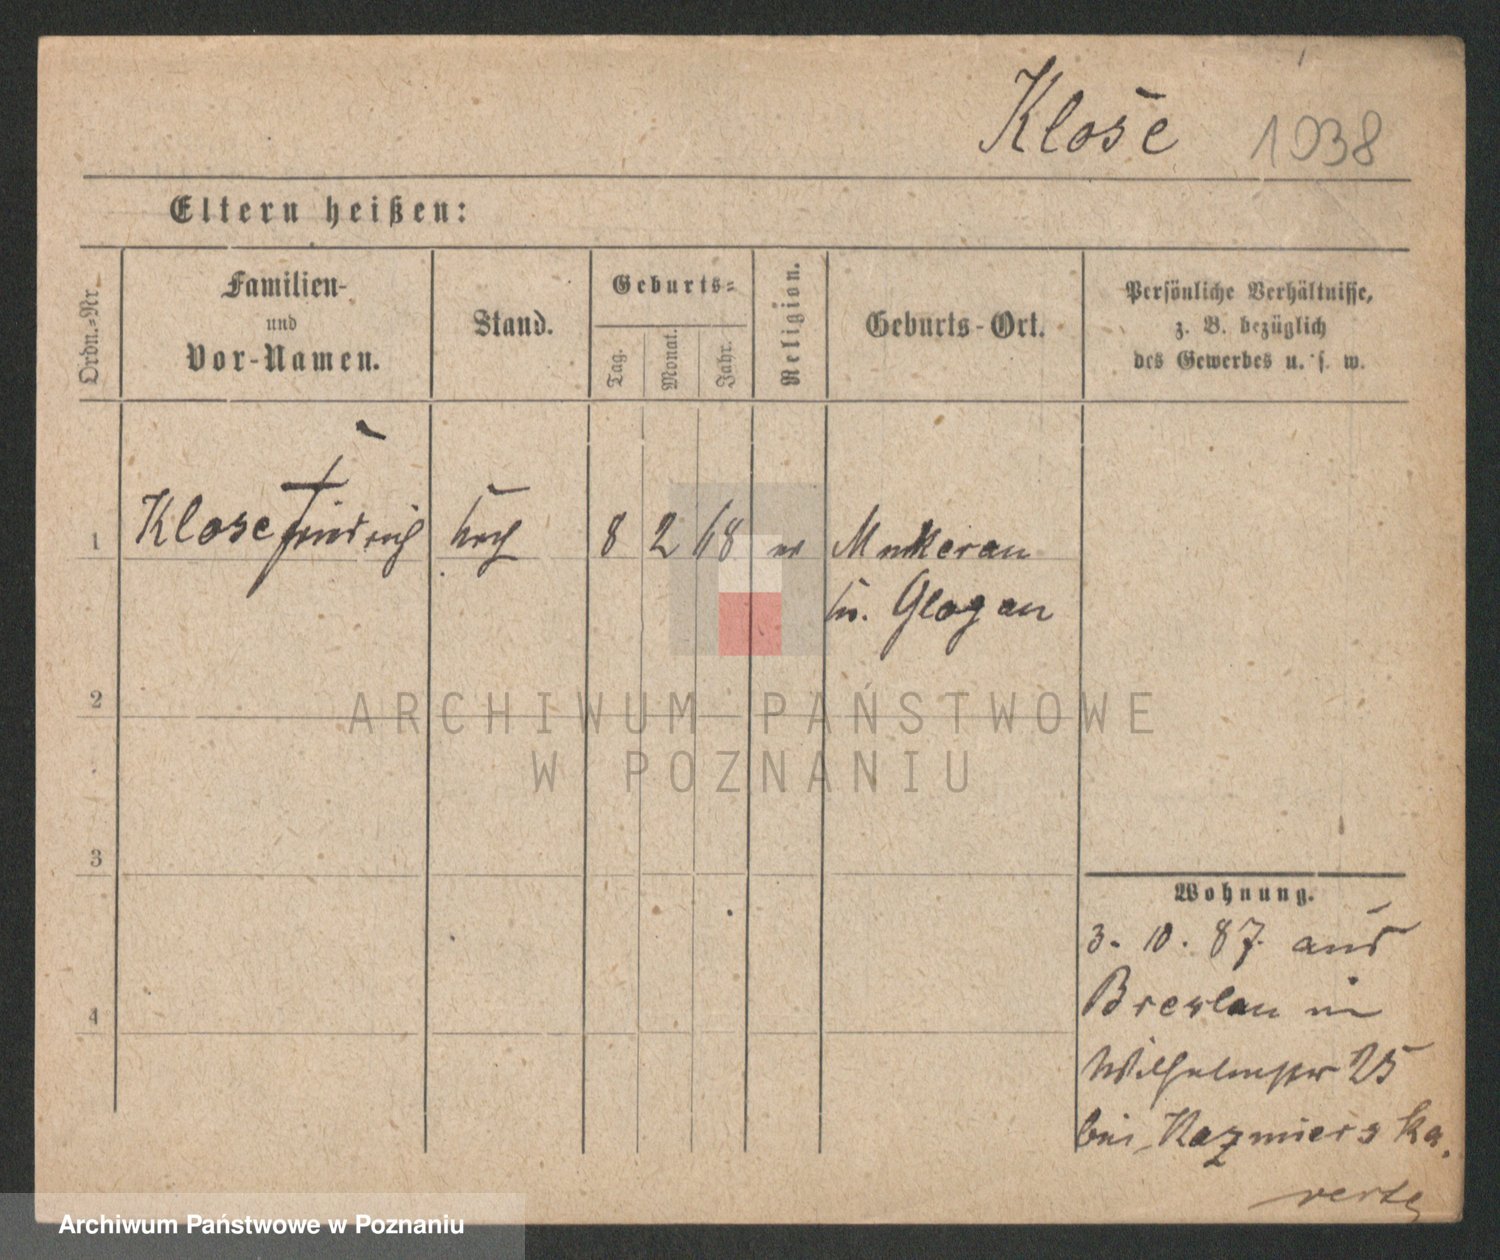 Klose 1038
Eltern heißen:
Ordn.-Nr.
Familien-
und
Vor-Namen.
Stand.
Geburts-
Tag.
Monat.
Jahr.
Religion.
Geburts-Ort.
Persönliche Verhältnisse,
z. B. bezüglich
des Gewerbes u. s. w.
1 Klose Friedrich Koch 8 2 68 ev
Kr. Glogau
2
ARCHIWUM PAŃSTWOWE
W POZNANIU
3
Wohnung.
3. 10. 87. aus
4
Breslau in
Wilhelmstr 25
bei Kazmierska.
verte
Archiwum Państwowe w Poznaniu